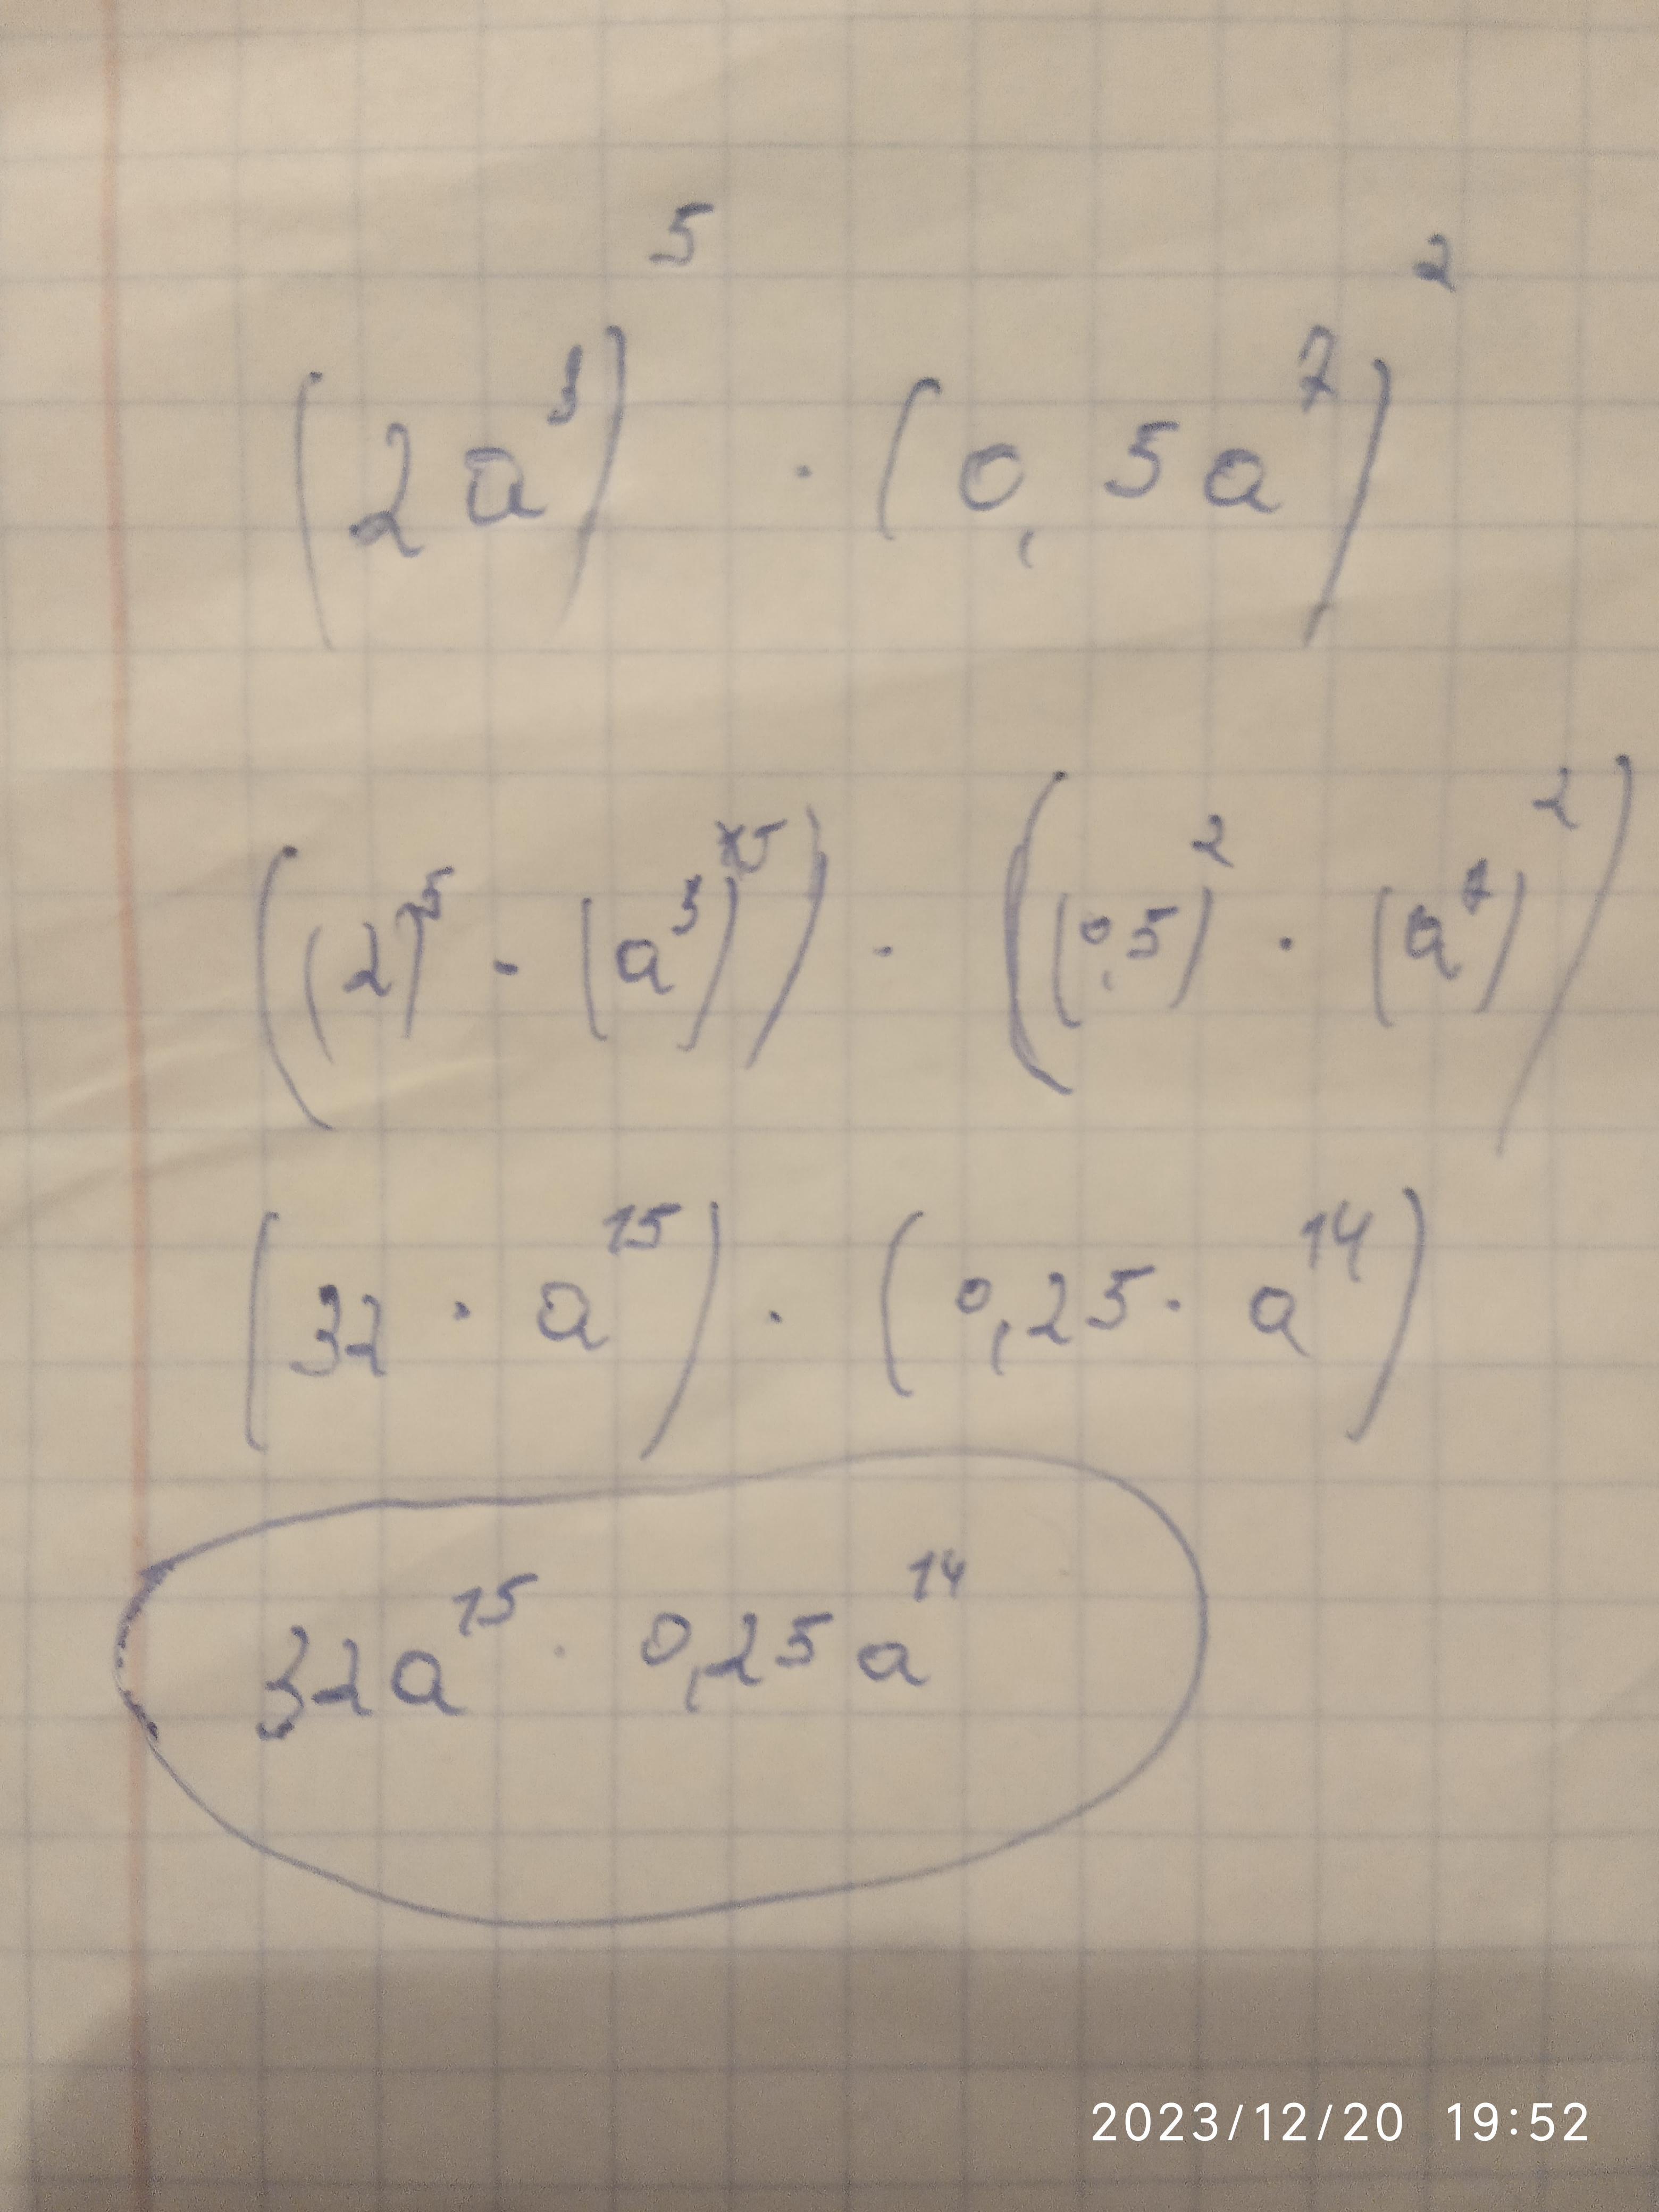 (2a³)⁵ · (0,5a⁷)²
((2)⁵ · (a³)˟⁵) · ((0,5)² · (a⁷)²)
(32 · a¹⁵) · (0,25 · a¹⁴)
32a¹⁵ · 0,25a¹⁴
2023/12/20 19:52